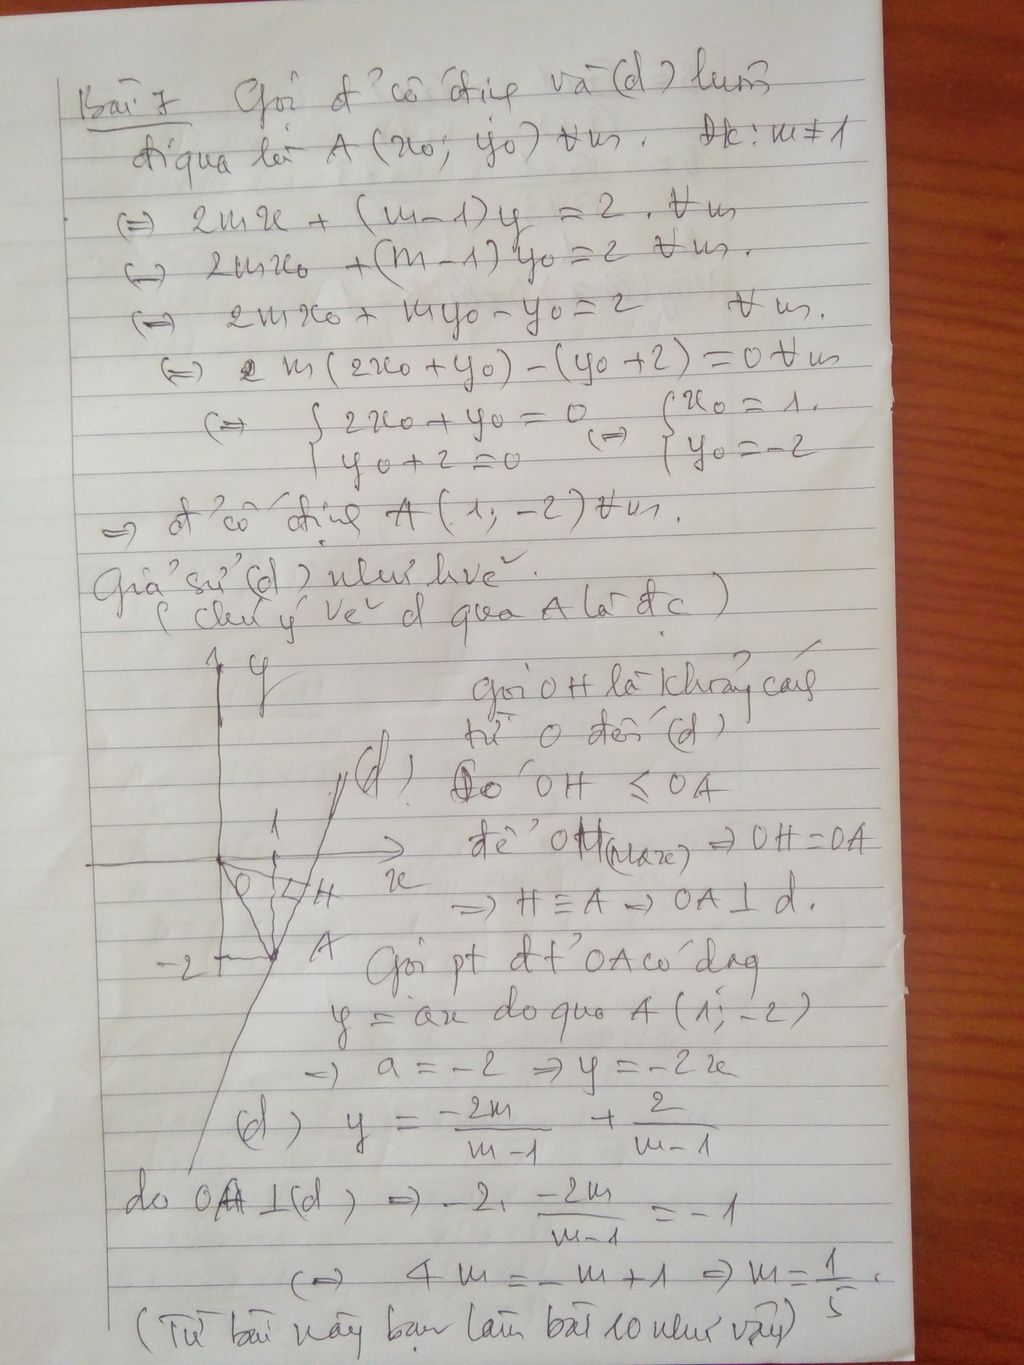 Bài 7 Gọi đ' cố định và (d) luôn
đi qua là A(x₀; y₀) ∀m. đk: m ≠ 1
(=) 2mx + (m-1)y = 2. ∀m
(=) 2mx₀ + (m-1)y₀ = 2 ∀m.
(=) 2mx₀ + my₀ - y₀ = 2 ∀m.
(=) m(2x₀ + y₀) - (y₀ + 2) = 0 ∀m
(=) { 2x₀ + y₀ = 0 (=) { x₀ = 1.
y₀ + 2 = 0 y₀ = -2
=> đ' cố định A(1; -2) ∀m.
Giả sử (d) như hvẽ.
(Chú ý vẽ d qua A là đc)
y
Gọi OH là khoảng cách
từ O đến (d)
(d)
Có OH ≤ OA
1
để OH(Max) => OH = OA
O H x
=> H ≡ A => OA ⊥ d.
-2 A
Gọi pt đt' OA có dạng
y = ax do qua A(1; -2)
=> a = -2 => y = -2x
(d) y = -2m/(m-1) + 2/(m-1)
do OA ⊥ (d) => -2. -2m/(m-1) = -1
(=) 4m = -m + 1 => m = 1/5.
(Từ bài này bạn làm bài 10 như vậy)